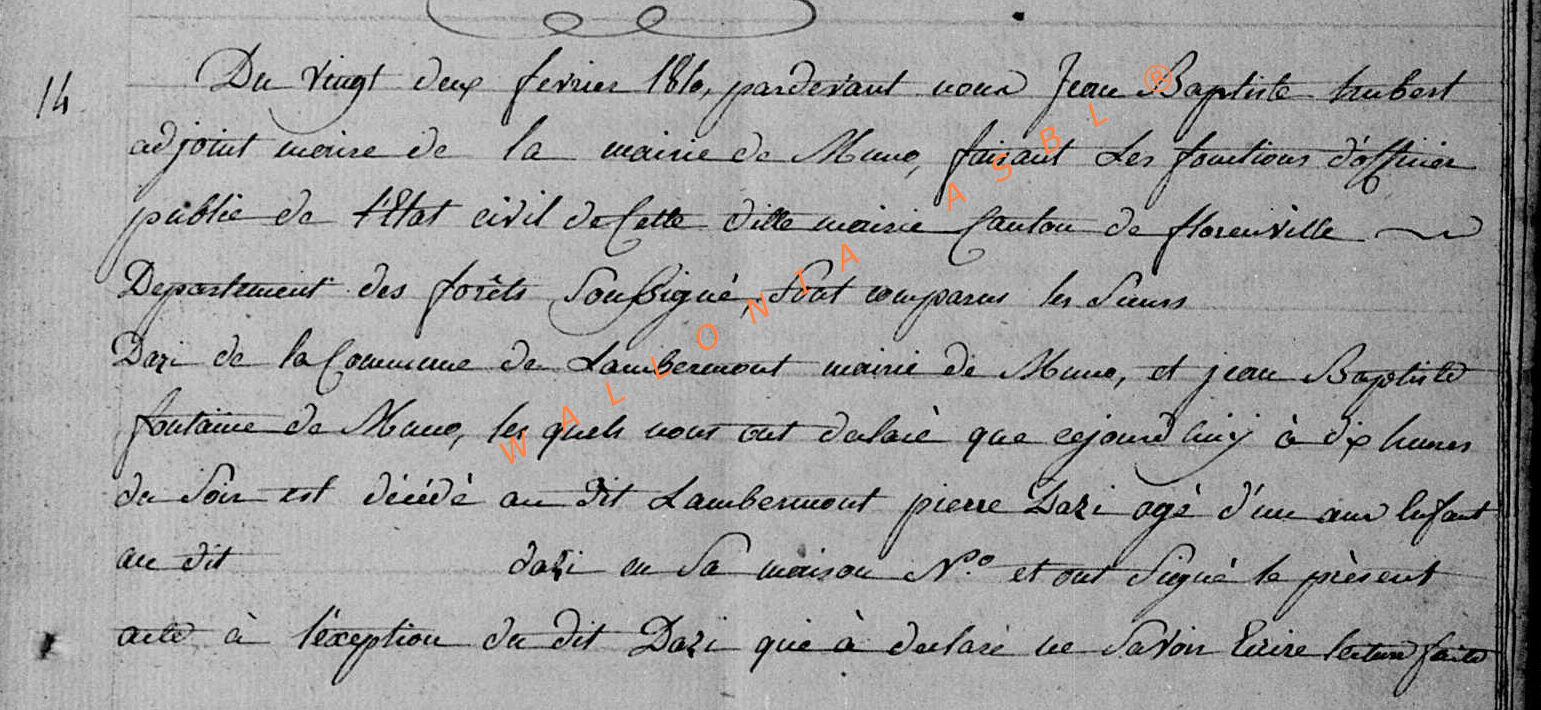 14
Du vingt deux fevrier 1810, pardevant nous Jean Baptiste hubert
adjoint maire de la mairie de Muno, faisant Les fonctions d'officier
public de l'Etat civil de Cette ditte mairie Canton de florenville
Departement des forêts Soussigné, Sont comparus les Sieurs
Dazi de la Commune de Lambermont mairie de Muno, et jean Baptiste
fontaine de Muno, les quels nous ont declaré que cejourd huij à dix heures
du Soir est décédé au dit Lambermont pierre Dazi agé d'un ans Enfant
au dit dazi en Sa maison N.o et ont Signé le présent
acte à l'exception du dit Dazi qui à declaré ne Savoir Ecrire lecture faite
WALLONIA ASBL ®